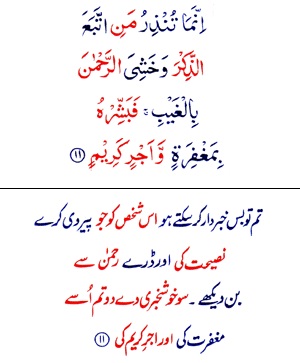 اِنَّمَا تُنْذِرُ مَنِ اتَّبَعَ
الذِّكْرَ وَخَشِىَ الرَّحْمٰنَ
بِالْغَيْبِ ۚ فَبَشِّرْهُ
بِمَغْفِرَةٍ وَّاَجْرٍ كَرِيْمٍ ⑪
تم تو بس خبردار کرسکتے ہو اس شخص کو جو پیروی کرے
نصیحت کی اور ڈرے رحمٰن سے
بن دیکھے ۔ سو خوشخبری دے دو تم اُسے
مغفرت کی اور اجرِ کریم کی ⑪